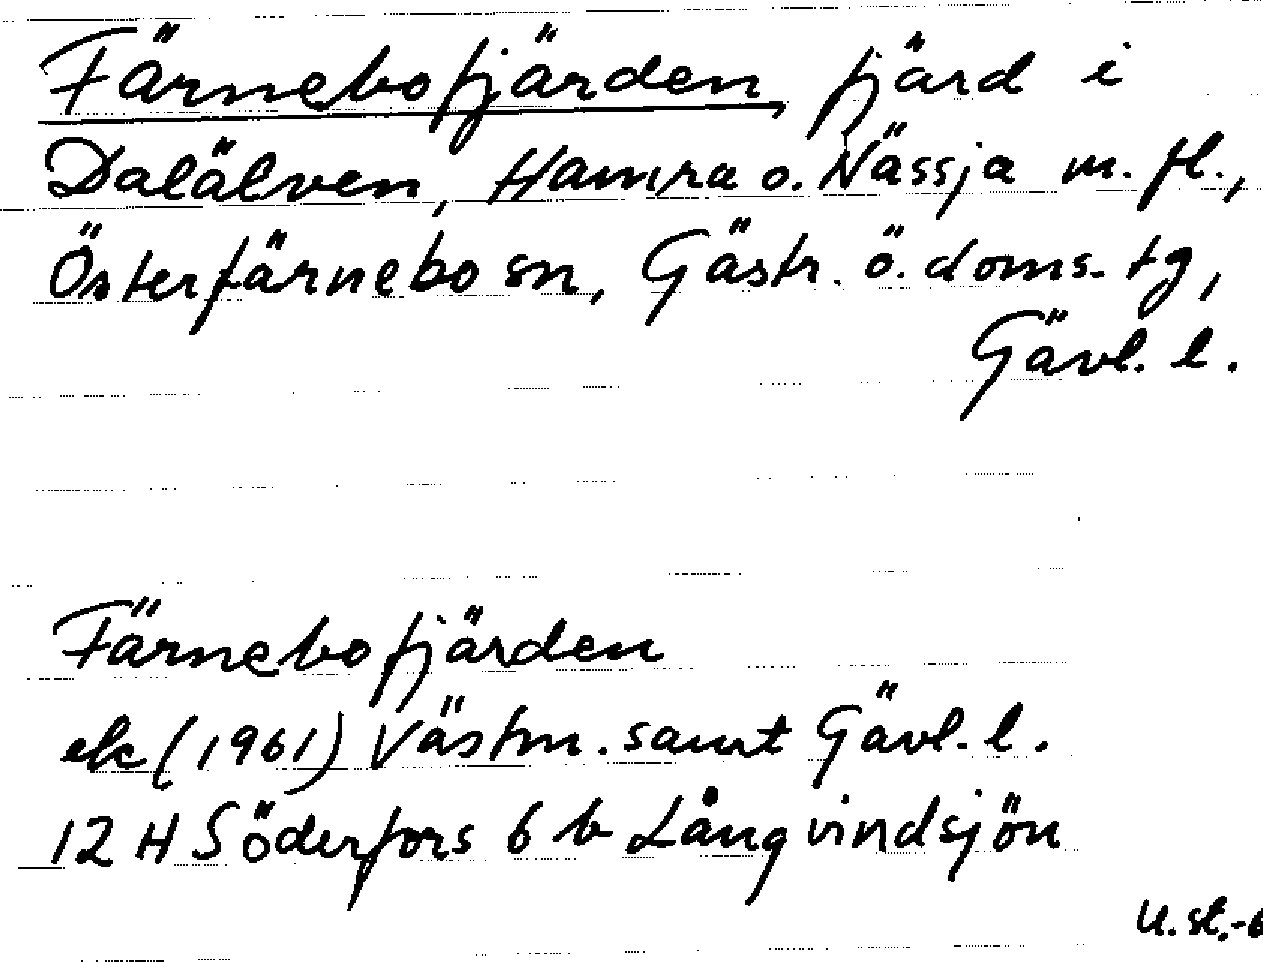 Färnebofjärden, fjärd i
Dalälven, Hamra o. Nässja m. fl.,
Österfärnebo sn, Gästr. ö. doms. tg,
Gävl. l.
Färnebofjärden
ek (1961) Västm. samt Gävl. l.
12 H Söderfors 6 b Långvindsjön
U. st.-6